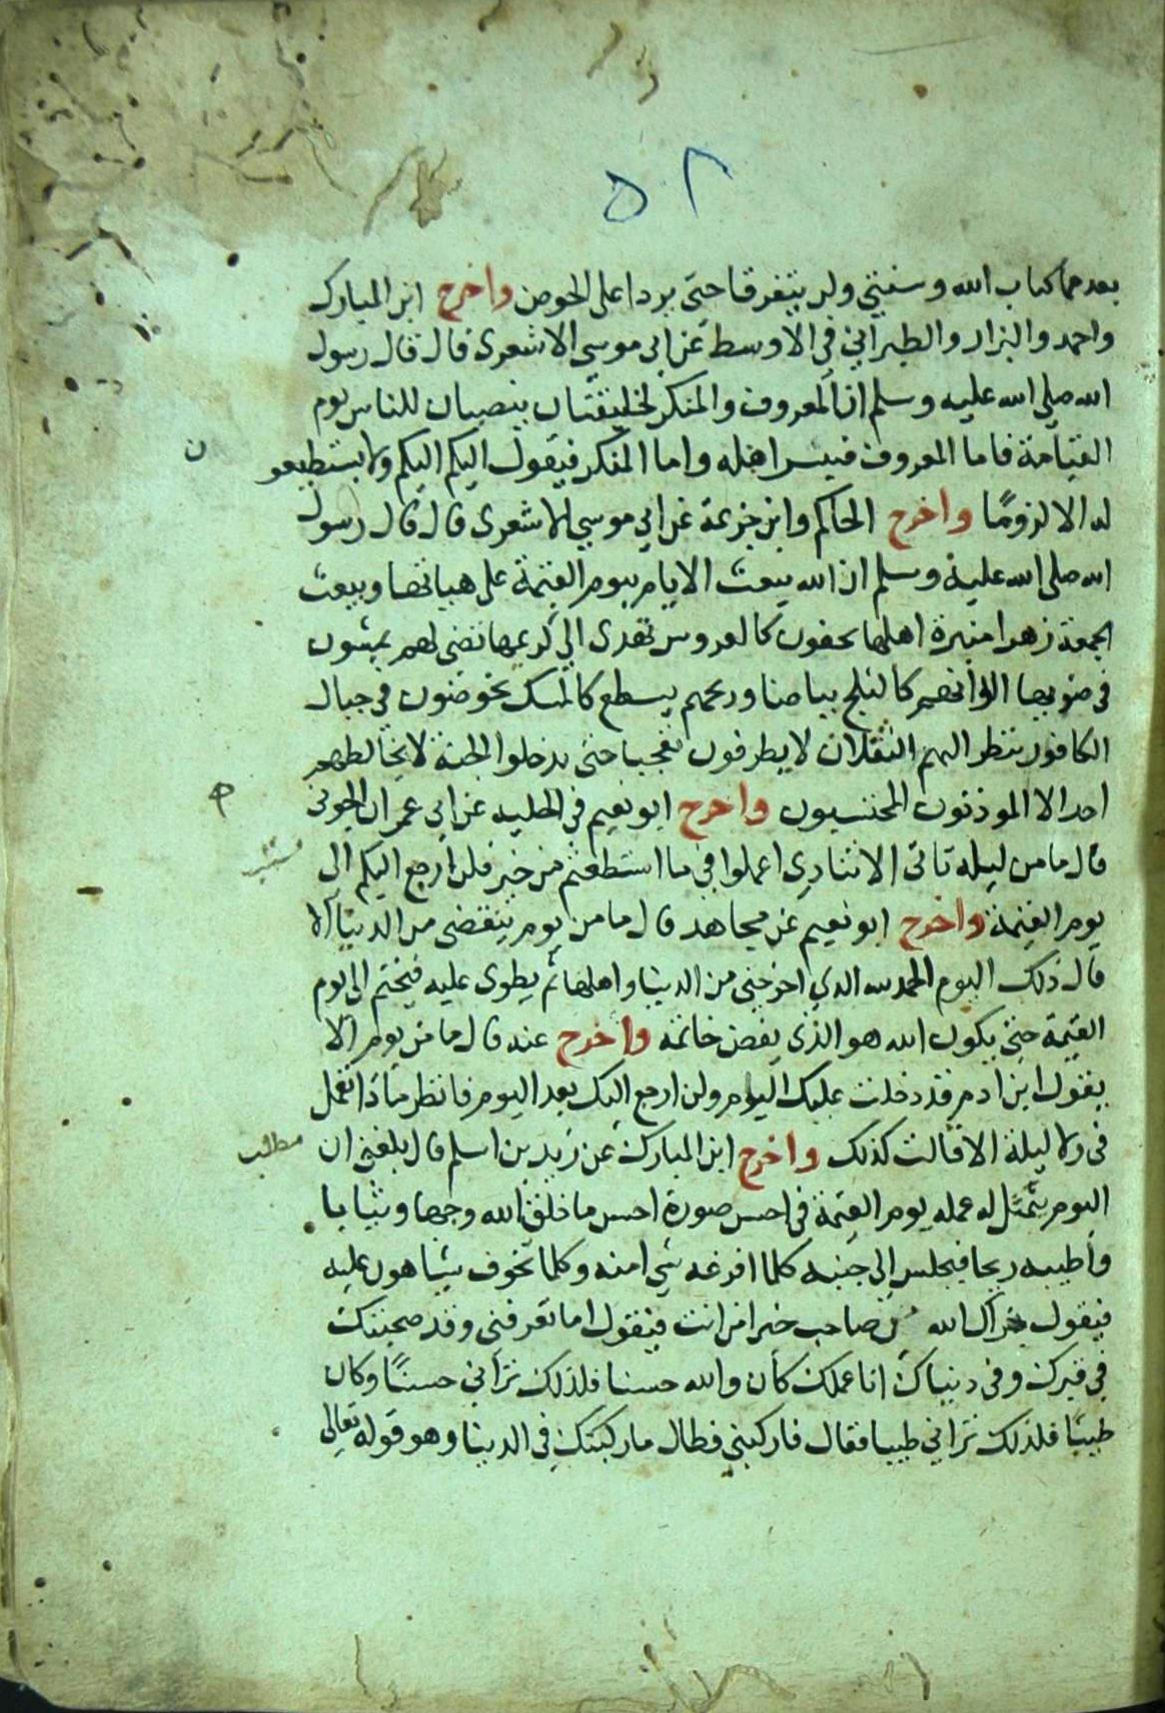 ٥٢
بعدهما كتاب الله وسنتي ولن يتفرقا حتى يردا على الحوض واخرج ابن المبارك
واحمد والبزار والطبراني في الاوسط عن ابي موسى الاشعرى قال قال رسول
الله صلى الله عليه وسلم ان المعروف والمنكر لخليقتان ينصبان للناس يوم
القيامة فاما المعروف فيبشر اهله واما المنكر فيقول اليكم اليكم ولا يستطيعو
ن
له الا لزومًا واخرج الحاكم وابن خزيمة عن ابي موسي الاشعرى قال قال رسول
الله صلى الله عليه وسلم ان الله يبعث الايام يوم القيمة على هياتها ويبعث
الجمعة زهرا منيرة اهلها يحفون كالعروس تهدى الي كريمها تضى لهم يمشون
في ضويها الوانهم كالثلج بياضا وريحهم يسطع كالمسك يخوضون في جبال
الكافور ينظر اليهم الثقلان لا يطرفون تعجبا حتى يدخلوا الجنة لا يخالطهم
احد الا الموذنون المحتسبون واخرج ابو نعيم في الحليه عن ابي عمران الجونى
قال ما من ليله تاتى الا تنادي اعملوا في ما استطعتم من خير فلن ارجع اليكم الى
يوم القيمة واخرج ابو نعيم عن مجاهد قال ما من يوم ينقضى من الدنيا الا
قال ذلك اليوم الحمد لله الدي اخرجني من الدنيا واهلها ثم يطوى عليه فيختم الى يوم
القيمة حتى يكون الله هو الذى يفض خاتمه واخرج عنه قال ما من يوم الا
يقول ابن ادم قد دخلت عليك اليوم ولن ارجع اليك بعد اليوم فانظر ماذا تعمل
فى ولا ليلة الا قالت كذلك واخرج ابن المبارك عن زيد بن اسلم قال بلغني ان
مطلب
اليوم يتمثل له عمله يوم القيمة في احسن صورة احسن ما خلق الله وجها وثيابا
واطيبه ريحا فيجلس الى جنبه كلما افزعه شي امنه وكلما تخوف شيا هون عليه
فيقول جزاك الله من صاحب خيرا من انت فيقول اما تعرفني وقد صحبتك
في قبرك وفى دنياك انا عملك كان والله حسنا فلذلك تراني حسنًا وكان
طيبًا فلذلك تراني طيبا فقال فاركبني فطال ما ركبتك في الدينا وهو قوله تعالى